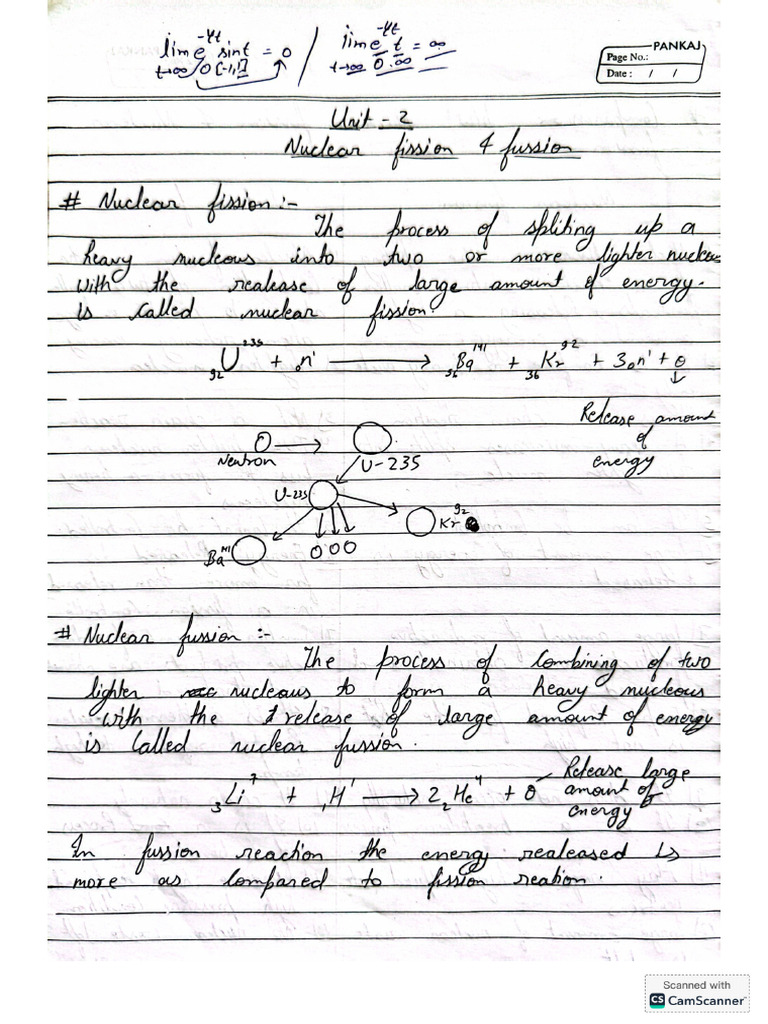 lim e^-4t sint = 0 / lim e^-4t t = ∞
t→∞ 0 [-1,1] t→∞ 0.∞
PANKAJ
Page No.:
Date : / /
Unit - 2
Nuclear fission & fussion
# Nuclear fission :-
The process of spliting up a
heavy nucleous into two or more lighter nucleo
with the realease of large amount of energy.
is called nuclear fission.
₉₂U²³⁵ + ₀n¹ → ₅₆Ba¹⁴¹ + ₃₆Kr⁹² + 3₀n¹ + θ
↓
Release amount
of
energy
Neutron U-235
U-235
Kr⁹²
Ba¹⁴¹
# Nuclear fussion :-
The process of combining of two
lighter nucleous to form a heavy nucleous
with the release of large amount of energy
is called nuclear fussion.
₃Li⁷ + ₁H¹ → 2₂He⁴ + θ Release large
amount of
energy
In fussion reaction the energy realeased is
more as compared to fission reation.
Scanned with
CS CamScanner